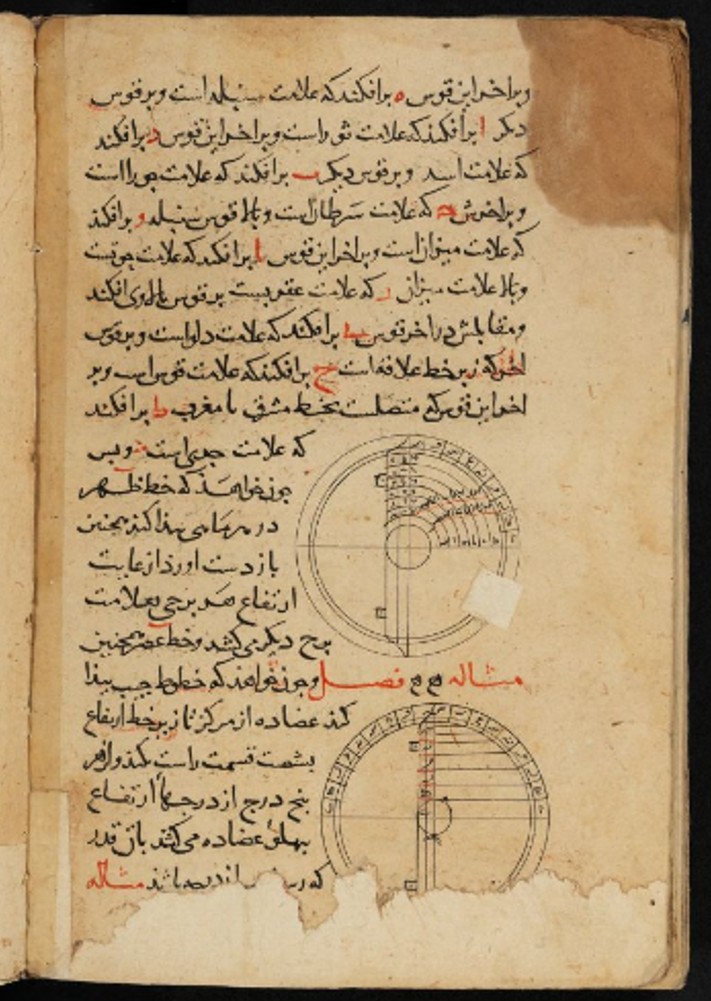 وبراخر این قوس ه برافکند که علامت سنبله است وبر قوس
دکر ا برافکند که علامت ثور است وبراخر این قوس د برافکند
که علامت اسد وبر قوس دیکر ب برافکند که علامت جوزا است
وبراخرش ج که علامت سرطان است وبالا قوس سنبله و برافکند
که علامت میزان است وبراخر این قوس یا برافکند که علامت حوتست
وبالا علامت میزان ز که علامت عقربست بر قوس بالا وی افکند
ومقابلش در اخر قوس ی برافکند که علامت دلو است وبر قوس
اخر که زیر خط علاقه است ح برافکند که علامت قوس است وبر
اخر این قوس که متصلست بخط مشرق با مغرب ط برافکند
که علامت جدی است وپس
چون خواهند که خط ظهر
در مرماهی پیدا کنند همچنین
باز دست اورد از غایت
ارتفاع هر برجی بعلامت
برج دیکر می کشد وخط عصر همچنین
مثاله فصل وچون خواهند که خطوط جیب پیدا
کند عضاده از مرکز تا زیر خط ارتفاع
بشصت قسمت راست بکند واز هر
پنج درج از درجهاء ارتفاع
بپهلوی عضاده می کشد بان قدر
که رسد مثاله